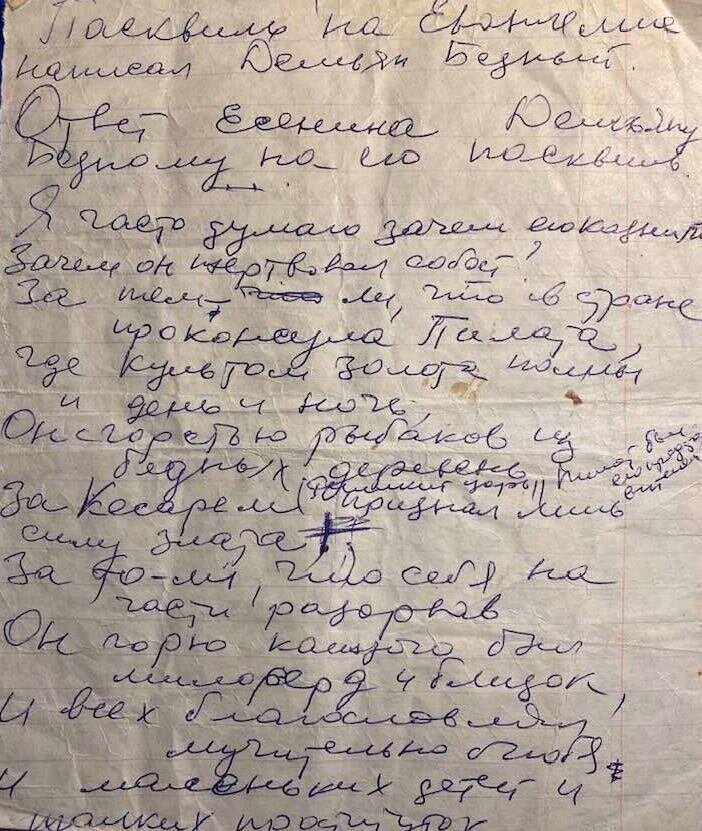 Пасквиль на Евангелие
написал Демьян Бедный.
Ответ Есенина Демьяну
Бедному на его пасквиль.
Я часто думаю зачем его казнили
Зачем он жертвовал собой?
За тем- ли, что в стране
проконсула Пилата,
где культом золота полны
и день и ночь,
Он с горстью рыбаков из
бедных деревень
За Кесарем (римский царь) признал лишь
Пилат был
его
силу злата
За то-ли, что себя на
части разорвав
Он горю каждого был
милосерд и близок,
И всех благословлял
мучительно любя
И маленьких детей и
проституток